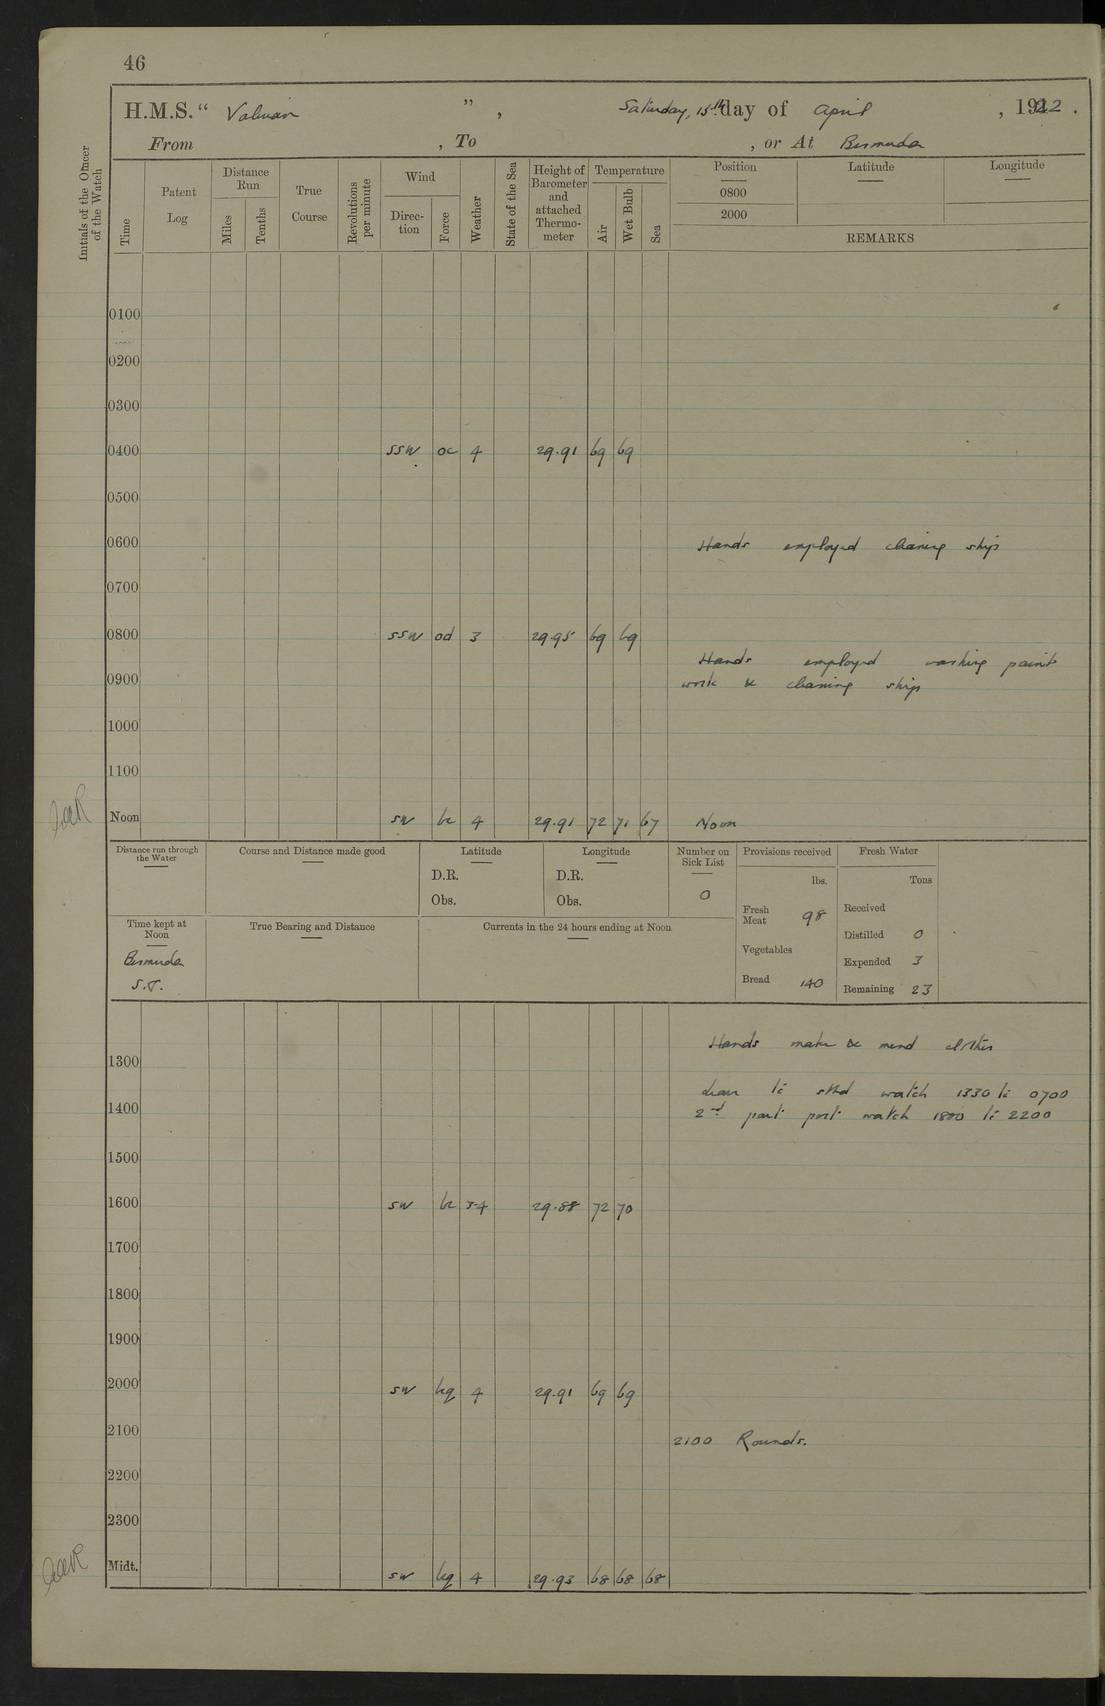 46
H.M.S. “ Valerian ” , Saturday, 15th day of April , 1922 .
From , To , or At Bermuda
Initials of the Officer of the Watch
Time
Patent Log
Distance Run
Miles
Tenths
True Course
Revolutions per minute
Wind
Direc-tion
Force
Weather
State of the Sea
Height of Barometer and attached Thermo-meter
Temperature
Air
Wet Bulb
Sea
Position
Latitude
Longitude
0800
2000
REMARKS
0100
0200
0300
0400 SSW oc 4 29.91 69 69
0500
0600 Hands employed cleaning ship
0700
0800 SSW od 3 29.95 69 69
Hands employed washing paint
0900 work & cleaning ship
1000
1100
Noon SW bc 4 29.91 72 71 67 Noon
Distance run through the Water
Course and Distance made good
Latitude
D.R.
Obs.
Longitude
D.R.
Obs.
Number on Sick List
0
Provisions received
lbs.
Fresh Meat 98
Vegetables
Bread 140
Fresh Water
Tons
Received
Distilled 0
Expended 3
Remaining 23
Time kept at Noon
Bermuda
S.T.
True Bearing and Distance
Currents in the 24 hours ending at Noon
Hands make & mend clothes
1300
Leave to stbd watch 1330 to 0700
1400 2nd part port watch 1800 to 2200
1500
1600 SW bc 3-4 29.88 72 70
1700
1800
1900
2000 SW bq 4 29.91 69 69
2100 2100 Rounds.
2200
2300
Midt. SW bq 4 29.93 68 68 68